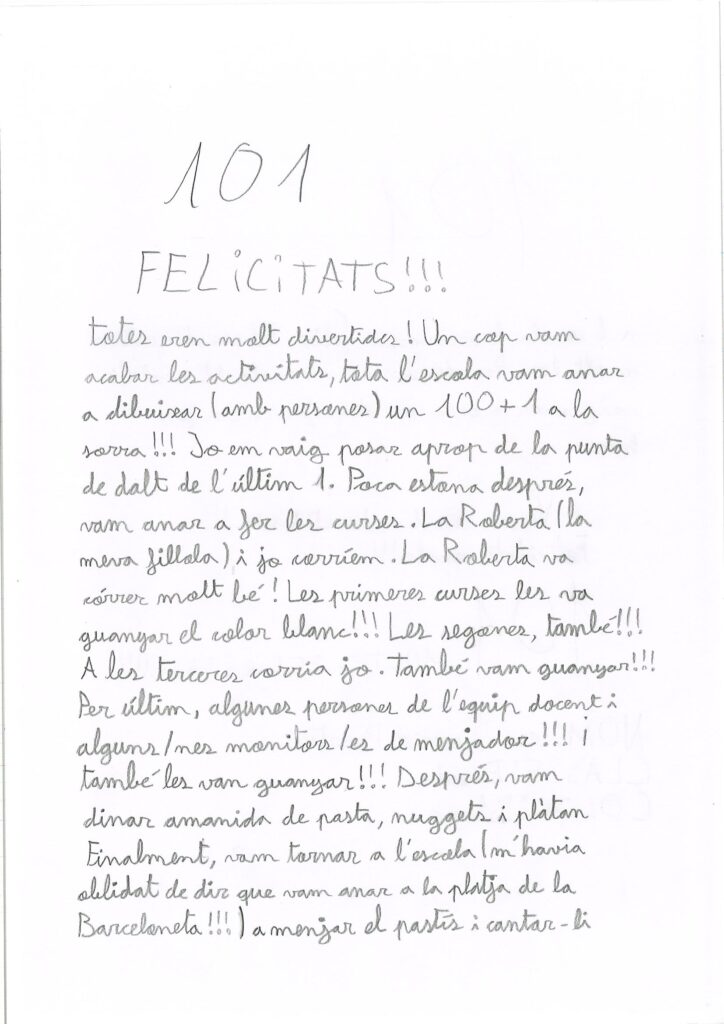 101
FELICITATS!!!
totes eren molt divertides! Un cop vam
acabar les activitats, tota l'escola vam anar
a dibuixar (amb persones) un 100+1 a la
sorra!!! Jo em vaig posar aprop de la punta
de dalt de l'últim 1. Poca estona després,
vam anar a fer les curses. La Roberta (la
meva fillola) i jo corríem. La Roberta va
córrer molt bé! Les primeres curses les va
guanyar el color blanc!!! Les segones, també!!!
A les terceres corria jo. També vam guanyar!!!
Per últim, algunes persones de l'equip docent i
alguns/nes monitors/es de menjador!!! i
també les van guanyar!!! Després, vam
dinar amanida de pasta, nuggets i plàtan
Finalment, vam tornar a l'escola (m'havia
oblidat de dir que vam anar a la platja de la
Barceloneta!!!) a menjar el pastís i cantar-li